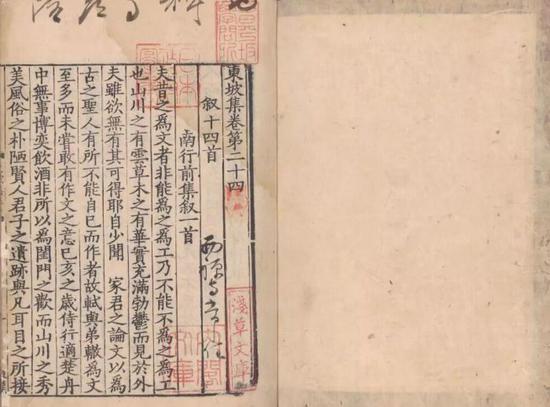 東坡集卷第二十四
叙十四首
南行前集叙一首
夫昔之為文者非能為之為工乃不能不為之為工
也山川之有雲草木之有華實充滿勃鬱而見於外
夫雖欲無有其可得耶自少聞 家君之論文以為
古之聖人有所不能自已而作者故軾與弟轍為文
至多而未甞敢有作文之意已亥之歲侍行適楚舟
中無事博奕飲酒非所以為閨門之歡而山川之秀
美風俗之朴陋賢人君子之遺跡與凡耳目之所接
淺草文庫